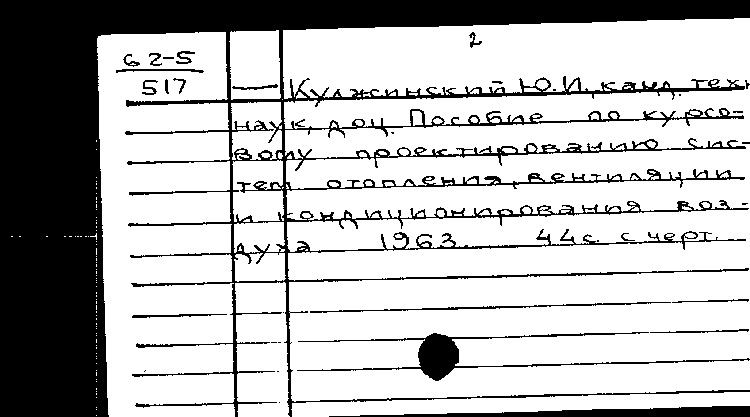 2
62-5
517
— Кулжинский Ю.И., канд. техн
наук, доц. Пособие по курсо=
вому проектированию сис-
тем отопления, вентиляции
и кондиционирования воз-
духа 1963. 44с. с черт.